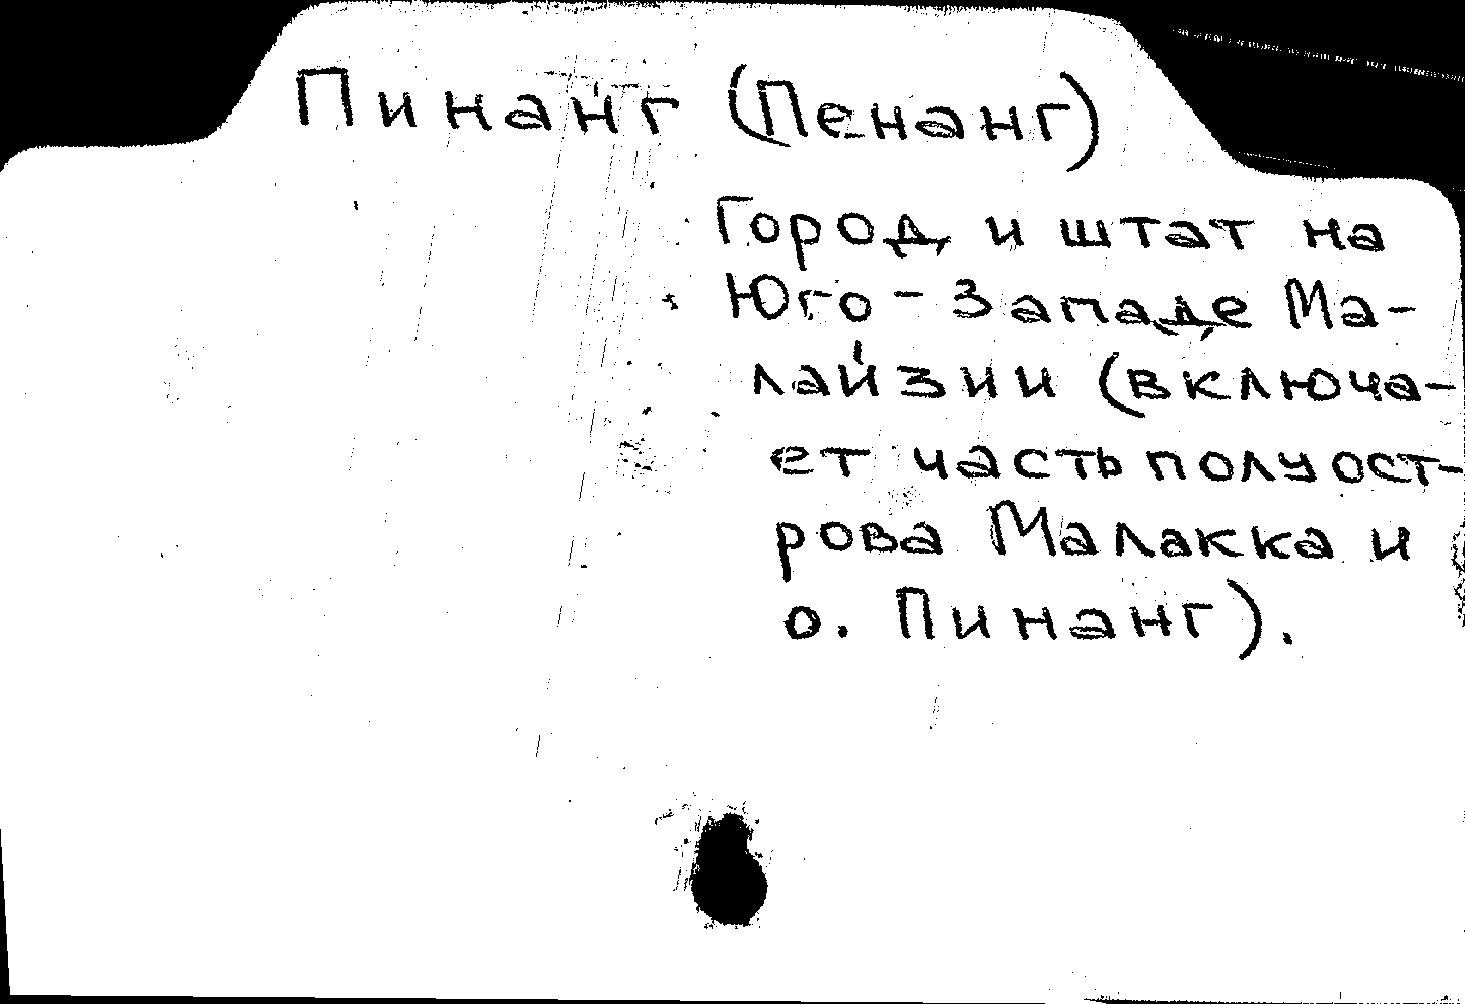 Пинанг (Пенанг)
Город и штат на
Юго-Западе Ма-
лайзии (включа-
ет часть полуост-
рова Малакка и
о. Пинанг).